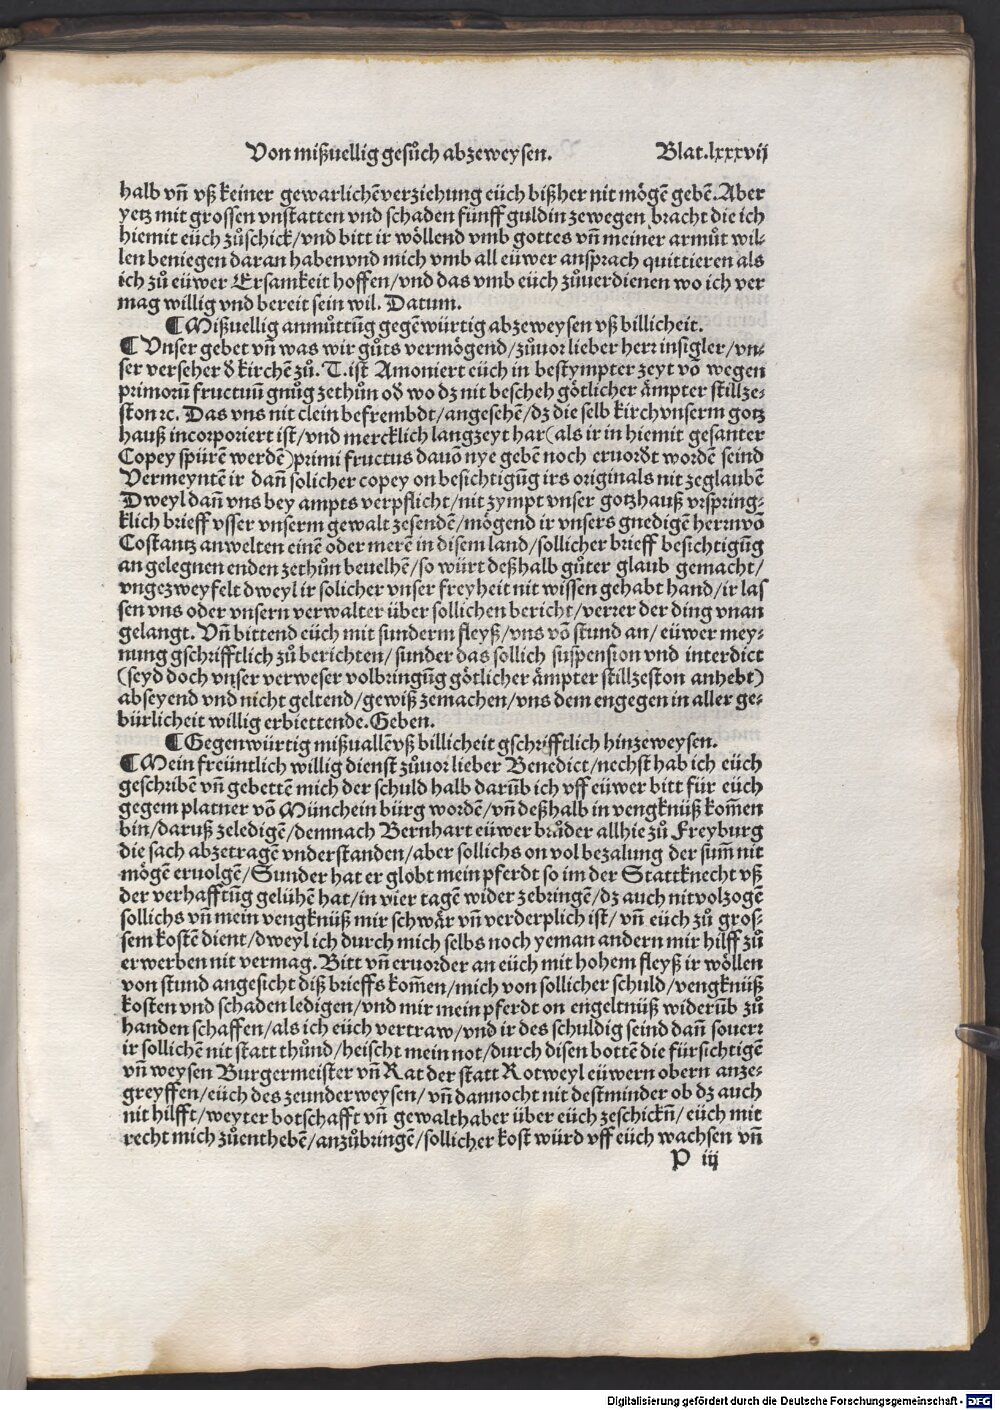 Von mißuellig gesůch abzeweysen. Blat.lxxxvij
halb vñ vß keiner gewarlichēverziehung eüch bißher nit mögē gebē.Aber
yetz mit grossen vnstatten vnd schaden fünff guldin zewegen bracht die ich
hiemit eüch zůschick/vnd bitt ir wöllend vmb gottes vñ meiner armůt wil-
len beniegen daran habenvnd mich vmb all eüwer ansprach quittieren als
ich zů eüwer Ersamkeit hoffen/vnd das vmb eüch zůuerdienen wo ich ver
mag willig vnd bereit sein wil. Datum.
¶Mißuellig anmůttūg gegēwürtig abzeweysen vß billicheit.
¶Vnser gebet vñ was wir gůts vermögend/zůuor lieber herr insigler/vn-
ser verseher d kirchē zů. T.ist Amoniert eüch in bestympter zeyt vō wegen
primorū fructuū gnůg zethůn od wo dz nit bescheh götlicher ämpter stillze-
ston ꝛc. Das vns nit clein befrembdt/angesehē/dz die selb kirch vnserm gotz
hauß incorporiert ist/vnd mercklich langzeyt har(als ir in hiemit gesanter
Copey spürē werdē)primi fructus dauō nye gebē noch eruordt wordē seind
Vermeyntē ir dañ solicher copey on besichtigūg irs originals nit zeglaubē
Dweyl dañ vns bey ampts verpflicht/nit zympt vnser gotzhauß vrspring-
klich brieff vsser vnserm gewalt zesendē/mögend ir vnsers gnedigē herrnvō
Costantz anwelten einē oder merē in disem land/sollicher brieff besichtigūg
an gelegnen enden zethůn beuelhē/so würt deßhalb gůter glaub gemacht/
vngezweyfelt dweyl ir solicher vnser freyheit nit wissen gehabt hand/ir las
sen vns oder vnsern verwalter über sollichen bericht/verrer der ding vnan
gelangt. Vñ bittend eüch mit sunderm fleyß/vns vō stund an/eüwer mey-
nung gschrifftlich zů berichten/sunder das sollich suspension vnd interdict
(seyd doch vnser verweser volbringūg götlicher ämpter stillzeston anhebt)
abseyend vnd nicht geltend/gewiß zemachen/vns dem engegen in aller ge-
bürlicheit willig erbiettende.Geben.
¶Gegenwürtig mißuallēvß billicheit gschrifftlich hinzeweysen.
¶Mein freüntlich willig dienst zůuor lieber Benedict/nechst hab ich eüch
geschriben vñ gebettē mich der schuld halb darūb ich vff eüwer bitt für eüch
gegem platner vō Münchein bürg wordē/vñ deßhalb in vengknüß kom̄en
bin/daruß zeledigē/demnach Bernhart eüwer brůder allhie zů Freyburg
die sach abzetragē vnderstanden/aber sollichs on vol bezalung der sum̄ nit
mögē eruolgē/Sunder hat er globt mein pferdt so im der Stattknecht vß
der verhafftūg gelühē hat/in vier tagē wider zebringē/dz auch nitvolzogē
sollichs vñ mein vengknüß mir schwär vñ verderplich ist/vñ eüch zů gros-
sem kostē dient/dweyl ich durch mich selbs noch yeman andern mir hilff zů
erwerben nit vermag. Bitt vñ eruorder an eüch mit hohem fleyß ir wöllen
von stund angesicht diß brieffs kom̄en/mich von sollicher schuld/vengknüß
kosten vnd schaden ledigen/vnd mir mein pferdt on engeltnüß widerūb zů
handen schaffen/als ich eüch vertraw/vnd ir des schuldig seind dañ souerr
ir sollichē nit statt thůnd/heischt mein not/durch disen bottē die fürsichtigē
vñ weysen Burgermeister vñ Rat der statt Rotweyl eüwern obern anze-
greyffen/eüch des zeunderweysen/vñ dannocht nit destminder ob dz auch
nit hilfft/weyter botschafft vñ gewalthaber über eüch zeschickñ/eüch mit
recht mich zůenthebē/anzůbringē/sollicher kost würd vff eüch wachsen vñ
P iij
Digitalisierung gefördert durch die Deutsche Forschungsgemeinschaft - DFG